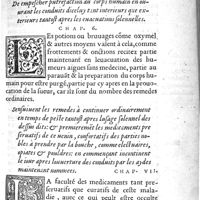 De empescher putrefaction au corps humain en ou-
urant les conduits d'iceluy tant interieurs que ex-
terieurs tantost apres les euacuations solennelles.
CHAP. 6.
LEs potions ou bruuages côme oxymel,
& autres moyens valent à cela, comme
frottements & onctions receües partie
maintenant en leuacuation des hu-
meurs aigues sans medecine, partie au
parauāt & la preparation du corps hu-
main pour estre purgé, partie par cy apres en la prouo-
cation de la sueur, car ils sont du nombre des remedes
ordinaires.
Sensuiuent les remedes à continuer ordinairement
en temps de peste tantost apres lusage solennel des
des sus dits: & premierement les medicaments pre
seruatifs & de tenue, confortatifs des parties no-
bles à prendre par la bouche, comme electuaires,
opiates & pouldres: en commençant incontinent
le iour apres louuerture des conduits par les aydes
maintenant nommees.
CHAP. VII.
LA faculté des medicaments tant pre-
seruatifs que curatifs de ceste mala-
die, autres ce qui peult estre occulte